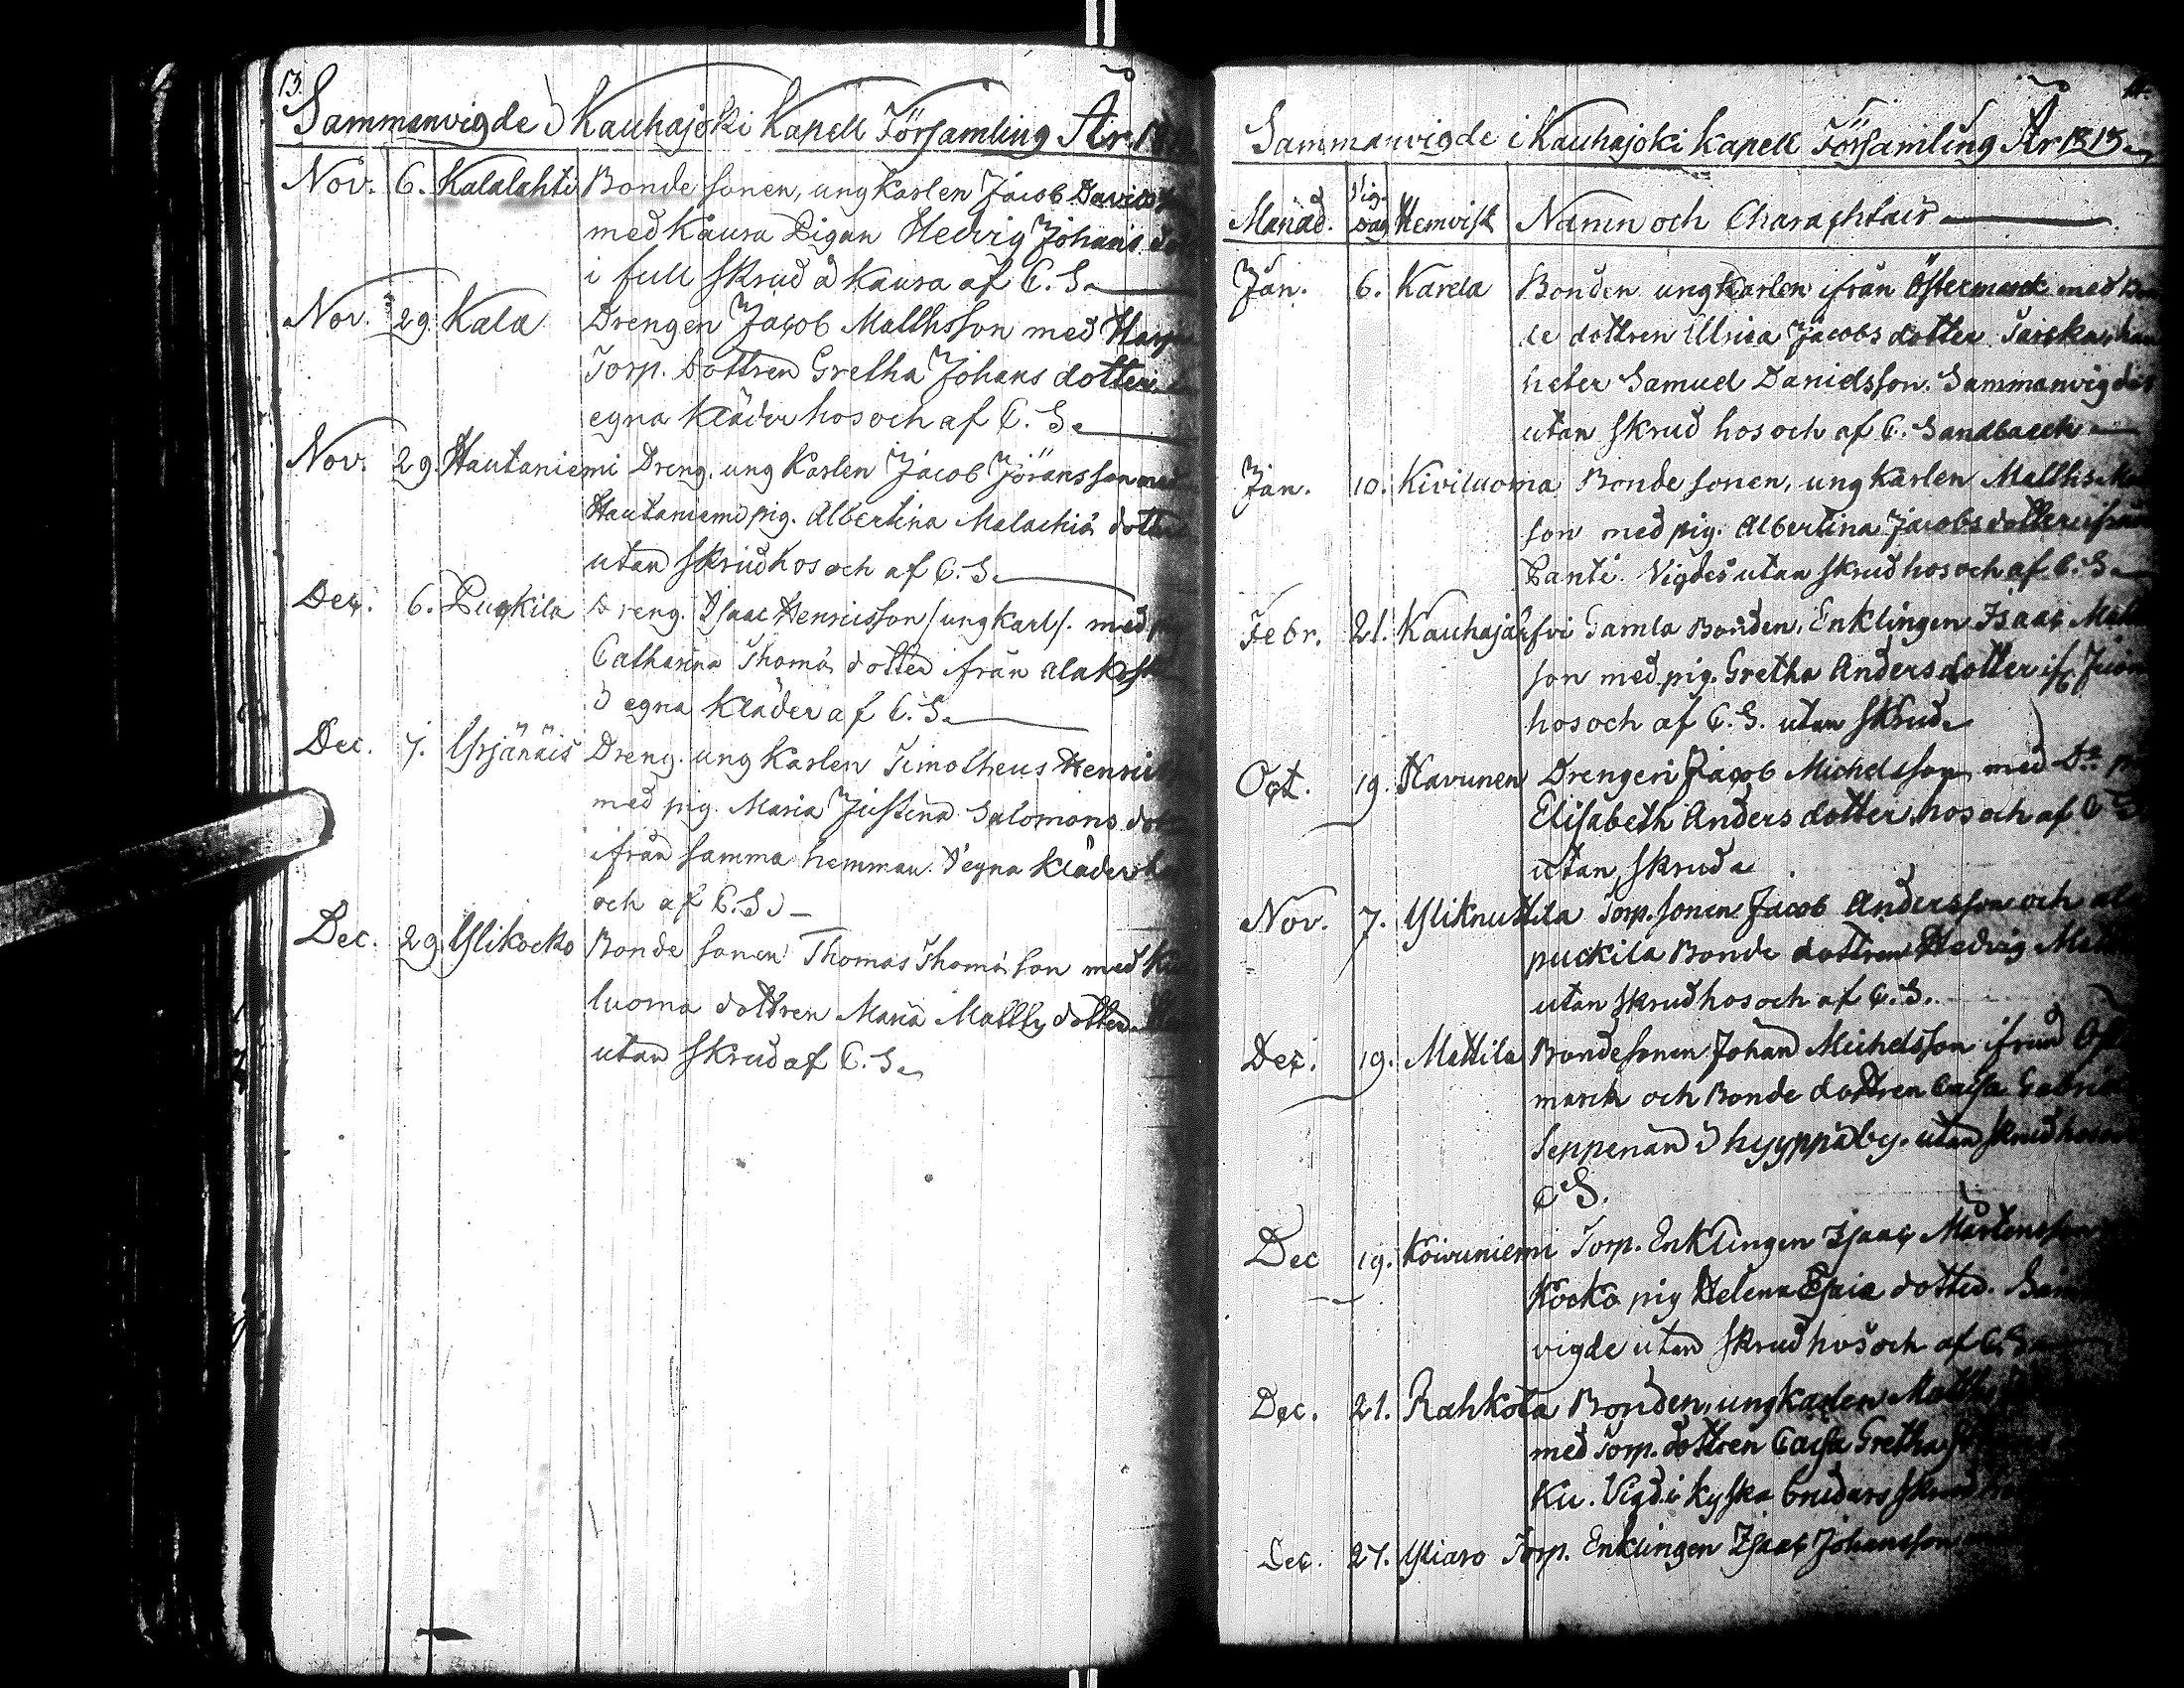 13.
Sammanvigde i Kauhajoki Kapell Församling År 181
Nov. 6. Kalalahti Bonde sonen, ungkarlen Jacob Davids
med Kaura Pigan Hedvig Johans dot
i full skrud å Kaura af C. S.
Nov. 29 Kala Drengen Jacob Matthsson med Harju
Torp. Dottren Gretha Johans dotter
egna kläder hos och af C. S.
Nov. 29. Hautaniemi Dreng. ungkarlen Jacob Jöransson med
Hautaniemi pig. Albertina Malachiæ dotter
utan skrud hos och af C. S.
Dec. 6. Puckila Dreng. Isaac Henricsson /ungkarl/. med
Catharina Thomæ dotter ifrån alakoski
i egna kläder af C. S.
Dec. 7. Yrjänäis Dreng. ungkarlen Timotheus Henrics
med pig. Maria Justina Salomons dotter
ifrån samma hemman. i egna kläder hos
och af C. S.
Dec. 29 Ylikocko Bonde sonen Thomas Thomæson med
luoma dottren Maria Matths dotter
utan skrud af C. S.
14.
Sammanvigde i Kauhajoki Kapell Församling År 1815
Månad. Vig-dag Hemvist Namn och Charachtair
Jan. 6. Karela Bonden ungkarlen ifrån Östermark med Bon
de dottren Ulrica Jacobs dotter han
heter Samuel Danielsson. Sammanvigdes
utan skrud hos och af C. Sandbaeck
Jan. 10. Kiviluoma Bonde sonen, ungkarlen Matths
son med pig. Albertina Jacobsdotter ifrån
Panti. Vigdes utan skrud hos och af C. S.
Febr. 21. Kauhajärfvi Gamla Bonden, Enklingen Isaac
son med pig. Gretha Andersdotter if
hos och af C. S. utan skrud
Oct. 19. Havunen Drengen Jacob Michelsson med Do
Elisabeth Anders dotter, hos och af C S
utan skrud
Nov. 7. Yliknuttila Torp. sonen Jacob Andersson och ala
puckila Bonde dottren Hedvig
utan skrud hos och af C. S.
Dec. 19. Mattila Bondesonen Johan Michelsson ifrån
marck och Bonde dottren Caisa
Seppenän i hyyppä by. utan skrud hos och
C S.
Dec 19. Koivuniemi Torp. Enklingen Isaac Mårtensson
Kocko pig Helena Esaiæ dotter.
vigde utan skrud hos och af C. S
Dec. 21. Rahkola Bonden, ungkarlen Matths
med Torp. dottren Caisa Gretha
Ku. Vigd. i kyska brudars skrud
Dec. 27. Yliaro Torp. Enklingen Isaac Johansson